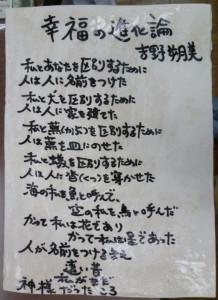 幸福の進化論
吉野朔美
私とあなたを区別するために
人は人に名前をつけた
私と犬を区別するために
人は人に家を建てた
私と蕪(かぶ)を区別するために
人は蕪を皿にのせた
私と蟻を区別するために
人は人に沓(くつ)を穿かせた
海の私を魚と呼んで、
空の私を鳥と呼んだ
かつて私は花であり
かつて私は星であった
人が名前をつける
遠い昔
私がまだ
神様だったころ